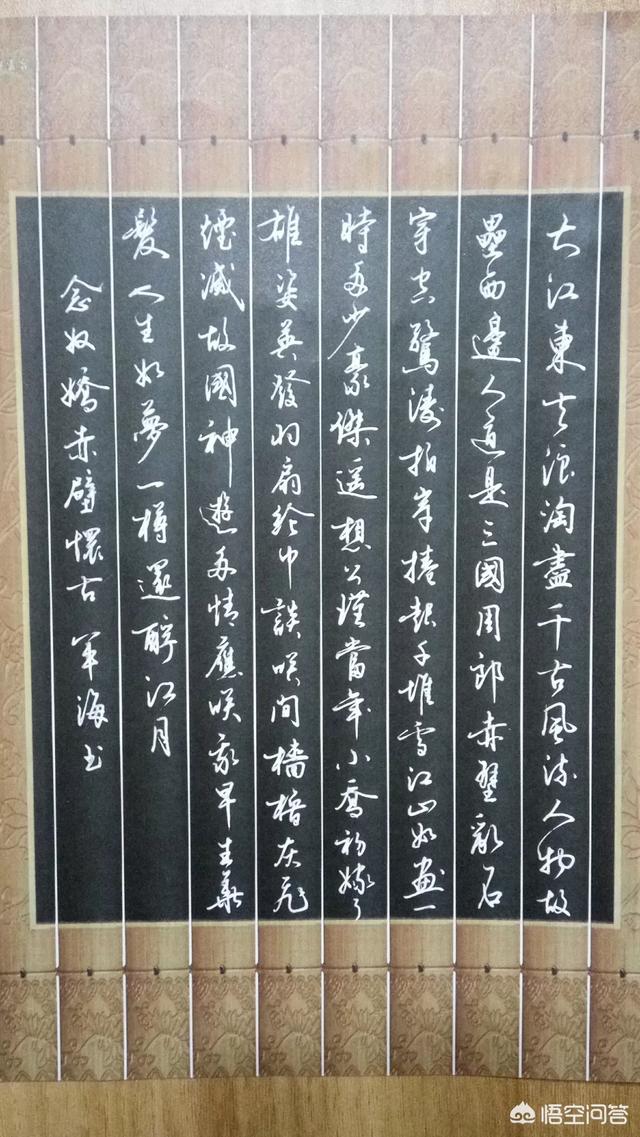 大江東去浪淘盡千古風流人物故
壘西邊人道是三國周郎赤壁亂石
穿空驚濤拍岸捲起千堆雪江山如畫一
時多少豪傑遥想公瑾當年小喬初嫁了
雄姿英發羽扇綸巾談咲間檣櫓灰飛
煙滅故國神遊多情應咲我早生華
髮人生如夢一樽還酹江月
念奴嬌赤壁懷古 軍海书
悟空问答